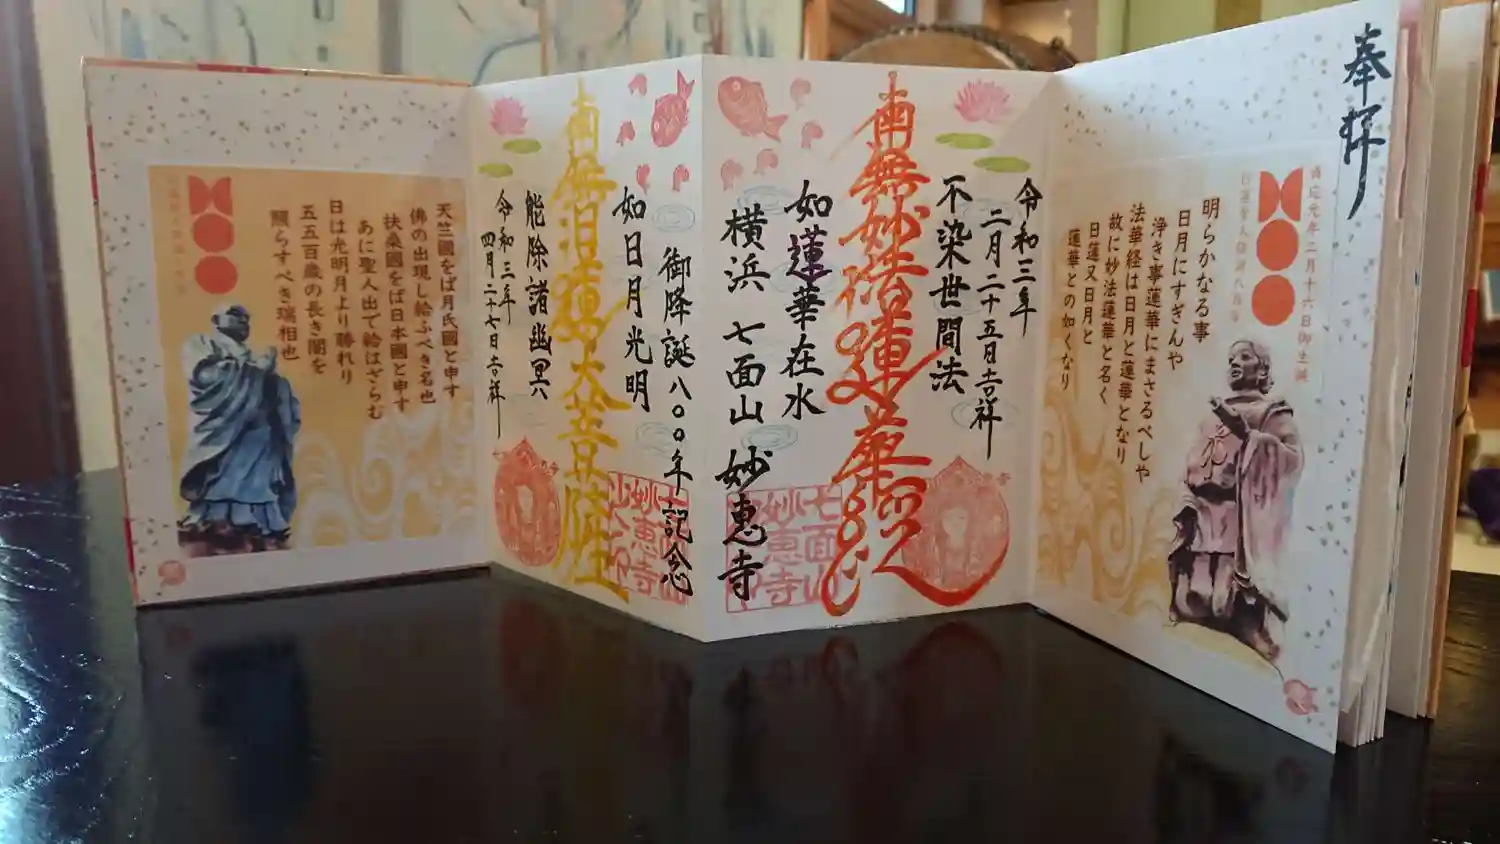 奉拝
貞応元年二月十六日御生誕
日蓮聖人御降誕八百年
明らかなる事
日月にすぎんや
浄き事蓮華にまさるべしや
法華経は日月と蓮華となり
故に妙法蓮華と名く
日蓮又日月と
蓮華との如くなり
令和三年
二月二十五日吉祥
不染世間法
南無妙法蓮華経
如蓮華在水
横浜 七面山 妙恵寺
七面山
妙恵寺
御降誕八〇〇年記念
如日月光明
南無日蓮大菩薩
能除諸幽冥
令和三年
四月二十七日吉祥
七面山
妙恵寺
天竺國をば月氏國と申す
佛の出現し給ふべき名也
扶桑國をば日本國と申す
あに聖人出で給はざらむ
日は光明月より勝れり
五五百歳の長き闇を
照らすべき瑞相也